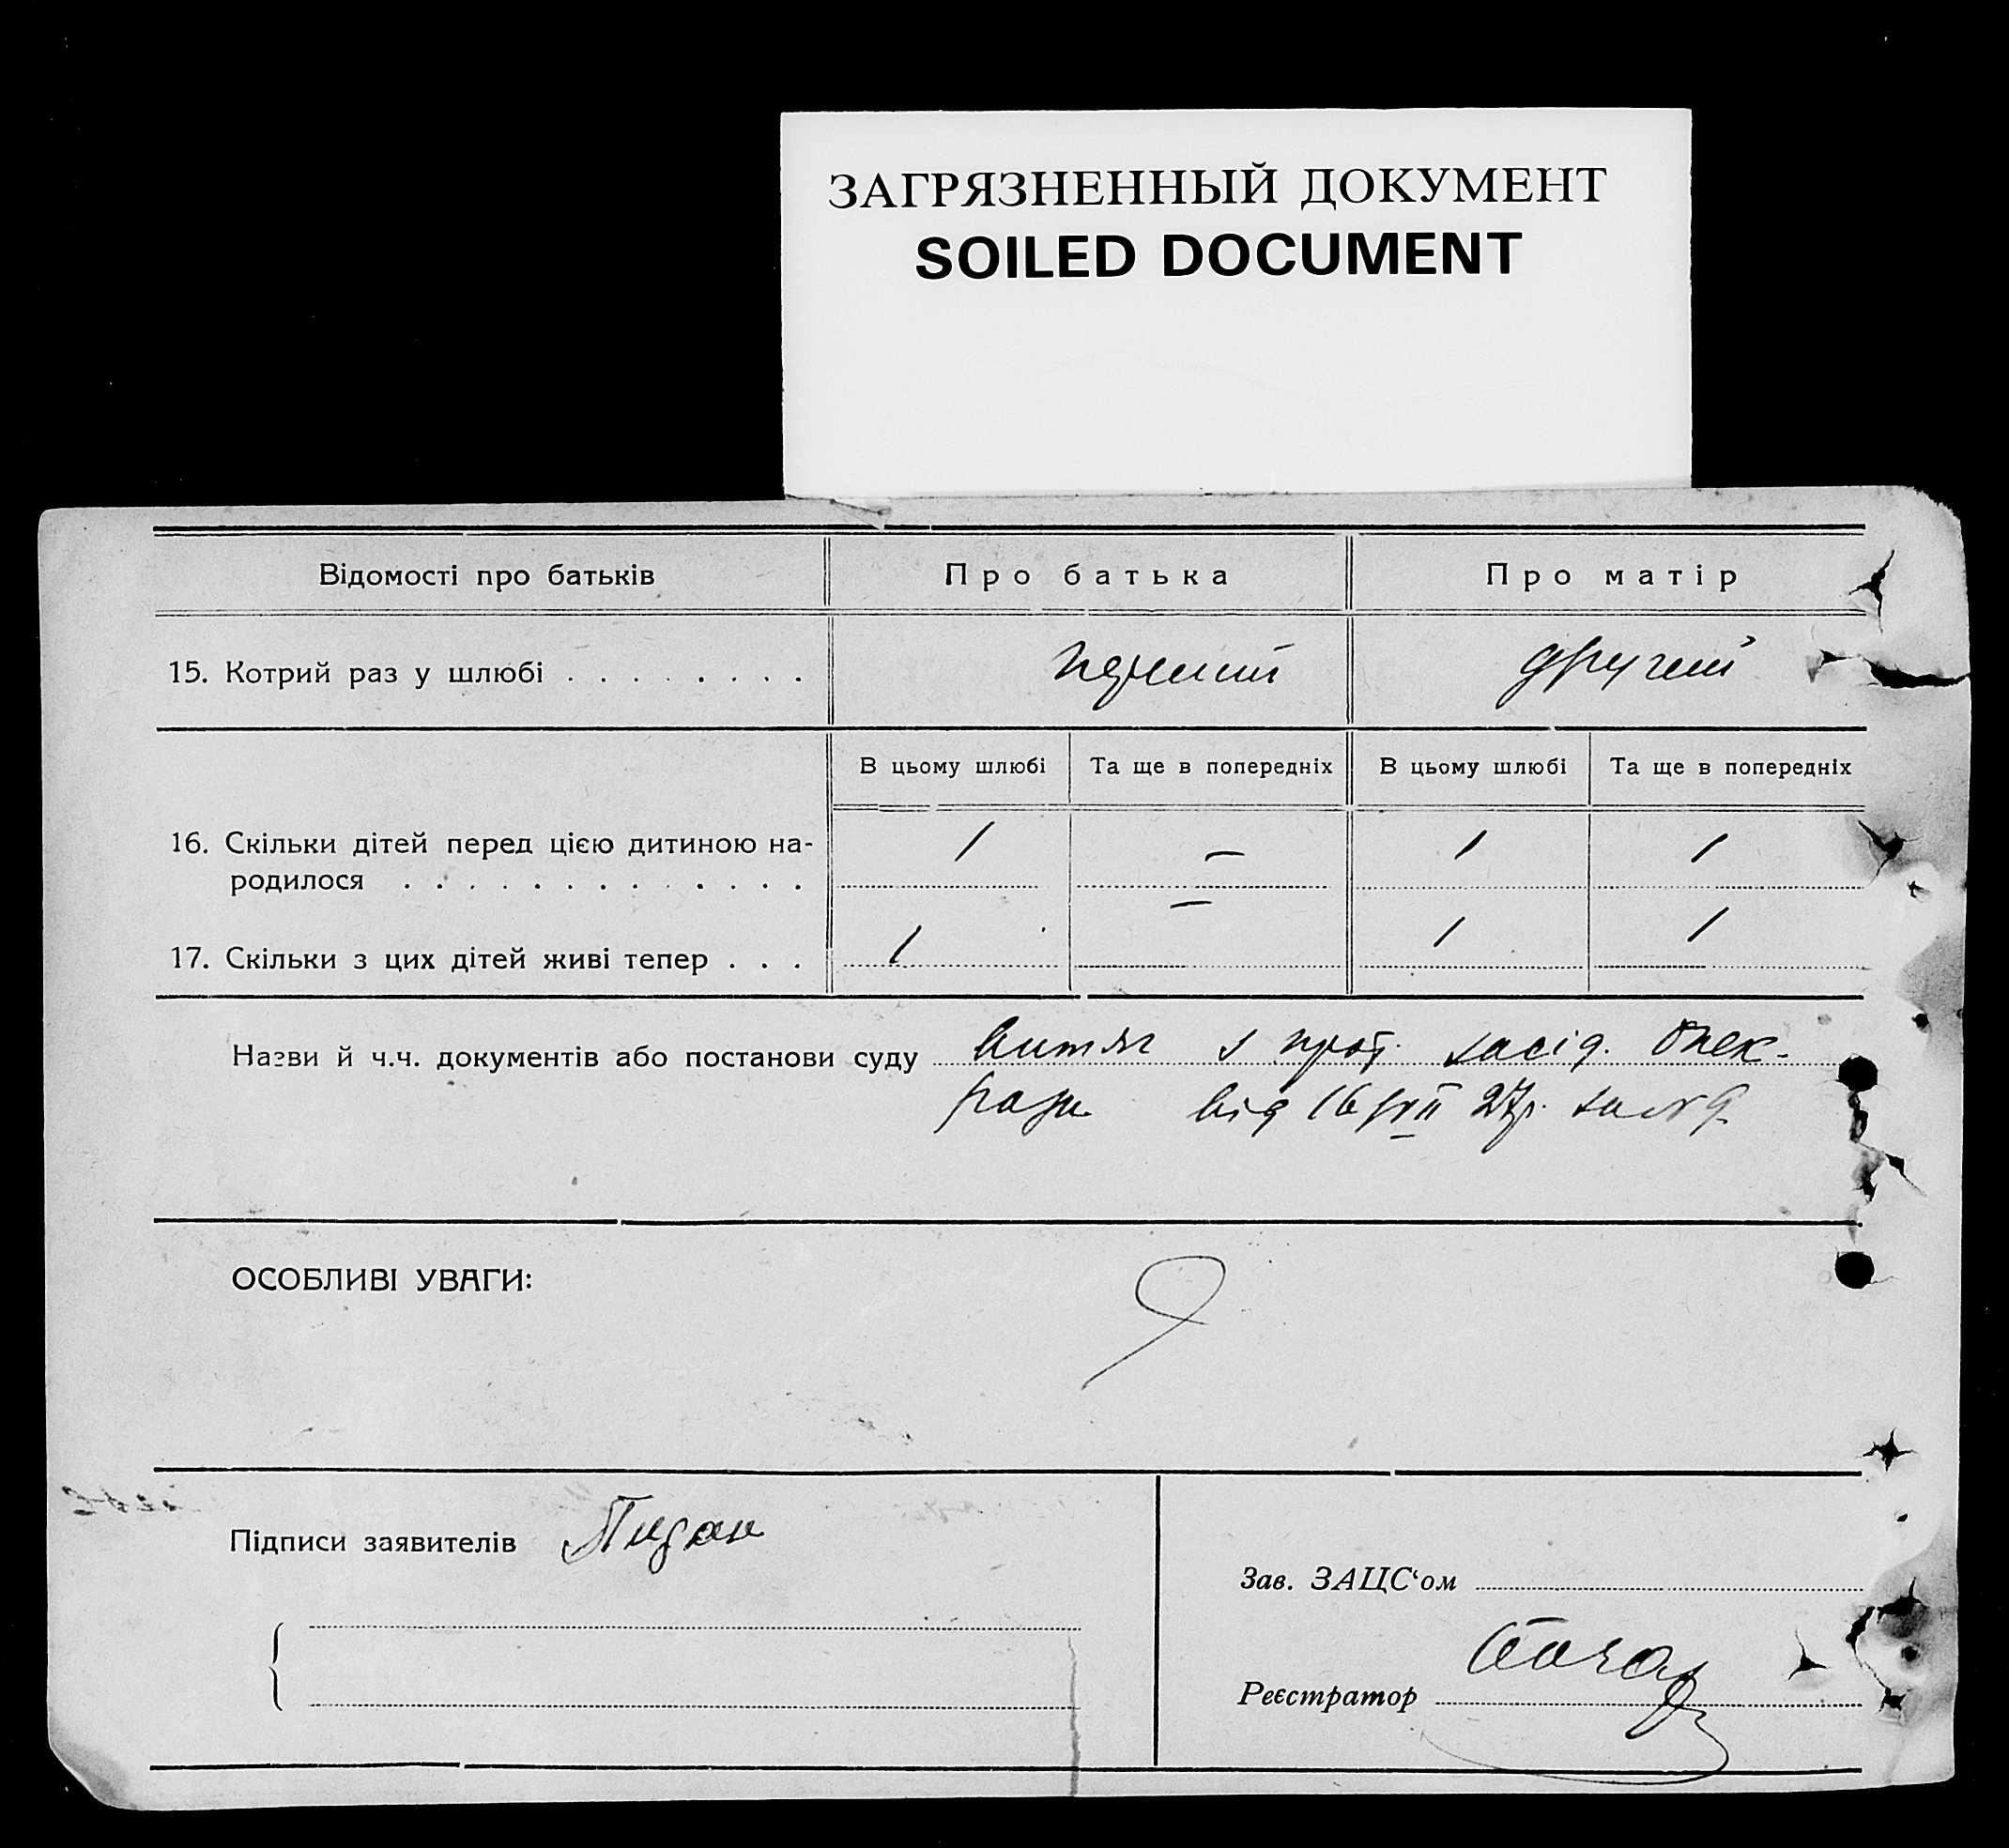 ЗАГРЯЗНЕННЫЙ ДОКУМЕНТ
SOILED DOCUMENT
Відомості про батьків Про батька Про матір
15. Котрий раз у шлюбі . . . . . . . . перший другий
В цьому шлюбі Та ще в попередніх В цьому шлюбі Та ще в попередніх
16. Скільки дітей перед цією дитиною на- 1 — 1 1
родилося . . . . . . . . . . . . .
17. Скільки з цих дітей живі тепер . . . 1 — 1 1
Назви й ч.ч. документів або постанови суду витяг з прот. засід. Опек.
ради від 16/VII 27р.
ОСОБЛИВІ УВАГИ:
Підписи заявителів
Зав. ЗАЦС‘ом
Реєстратор